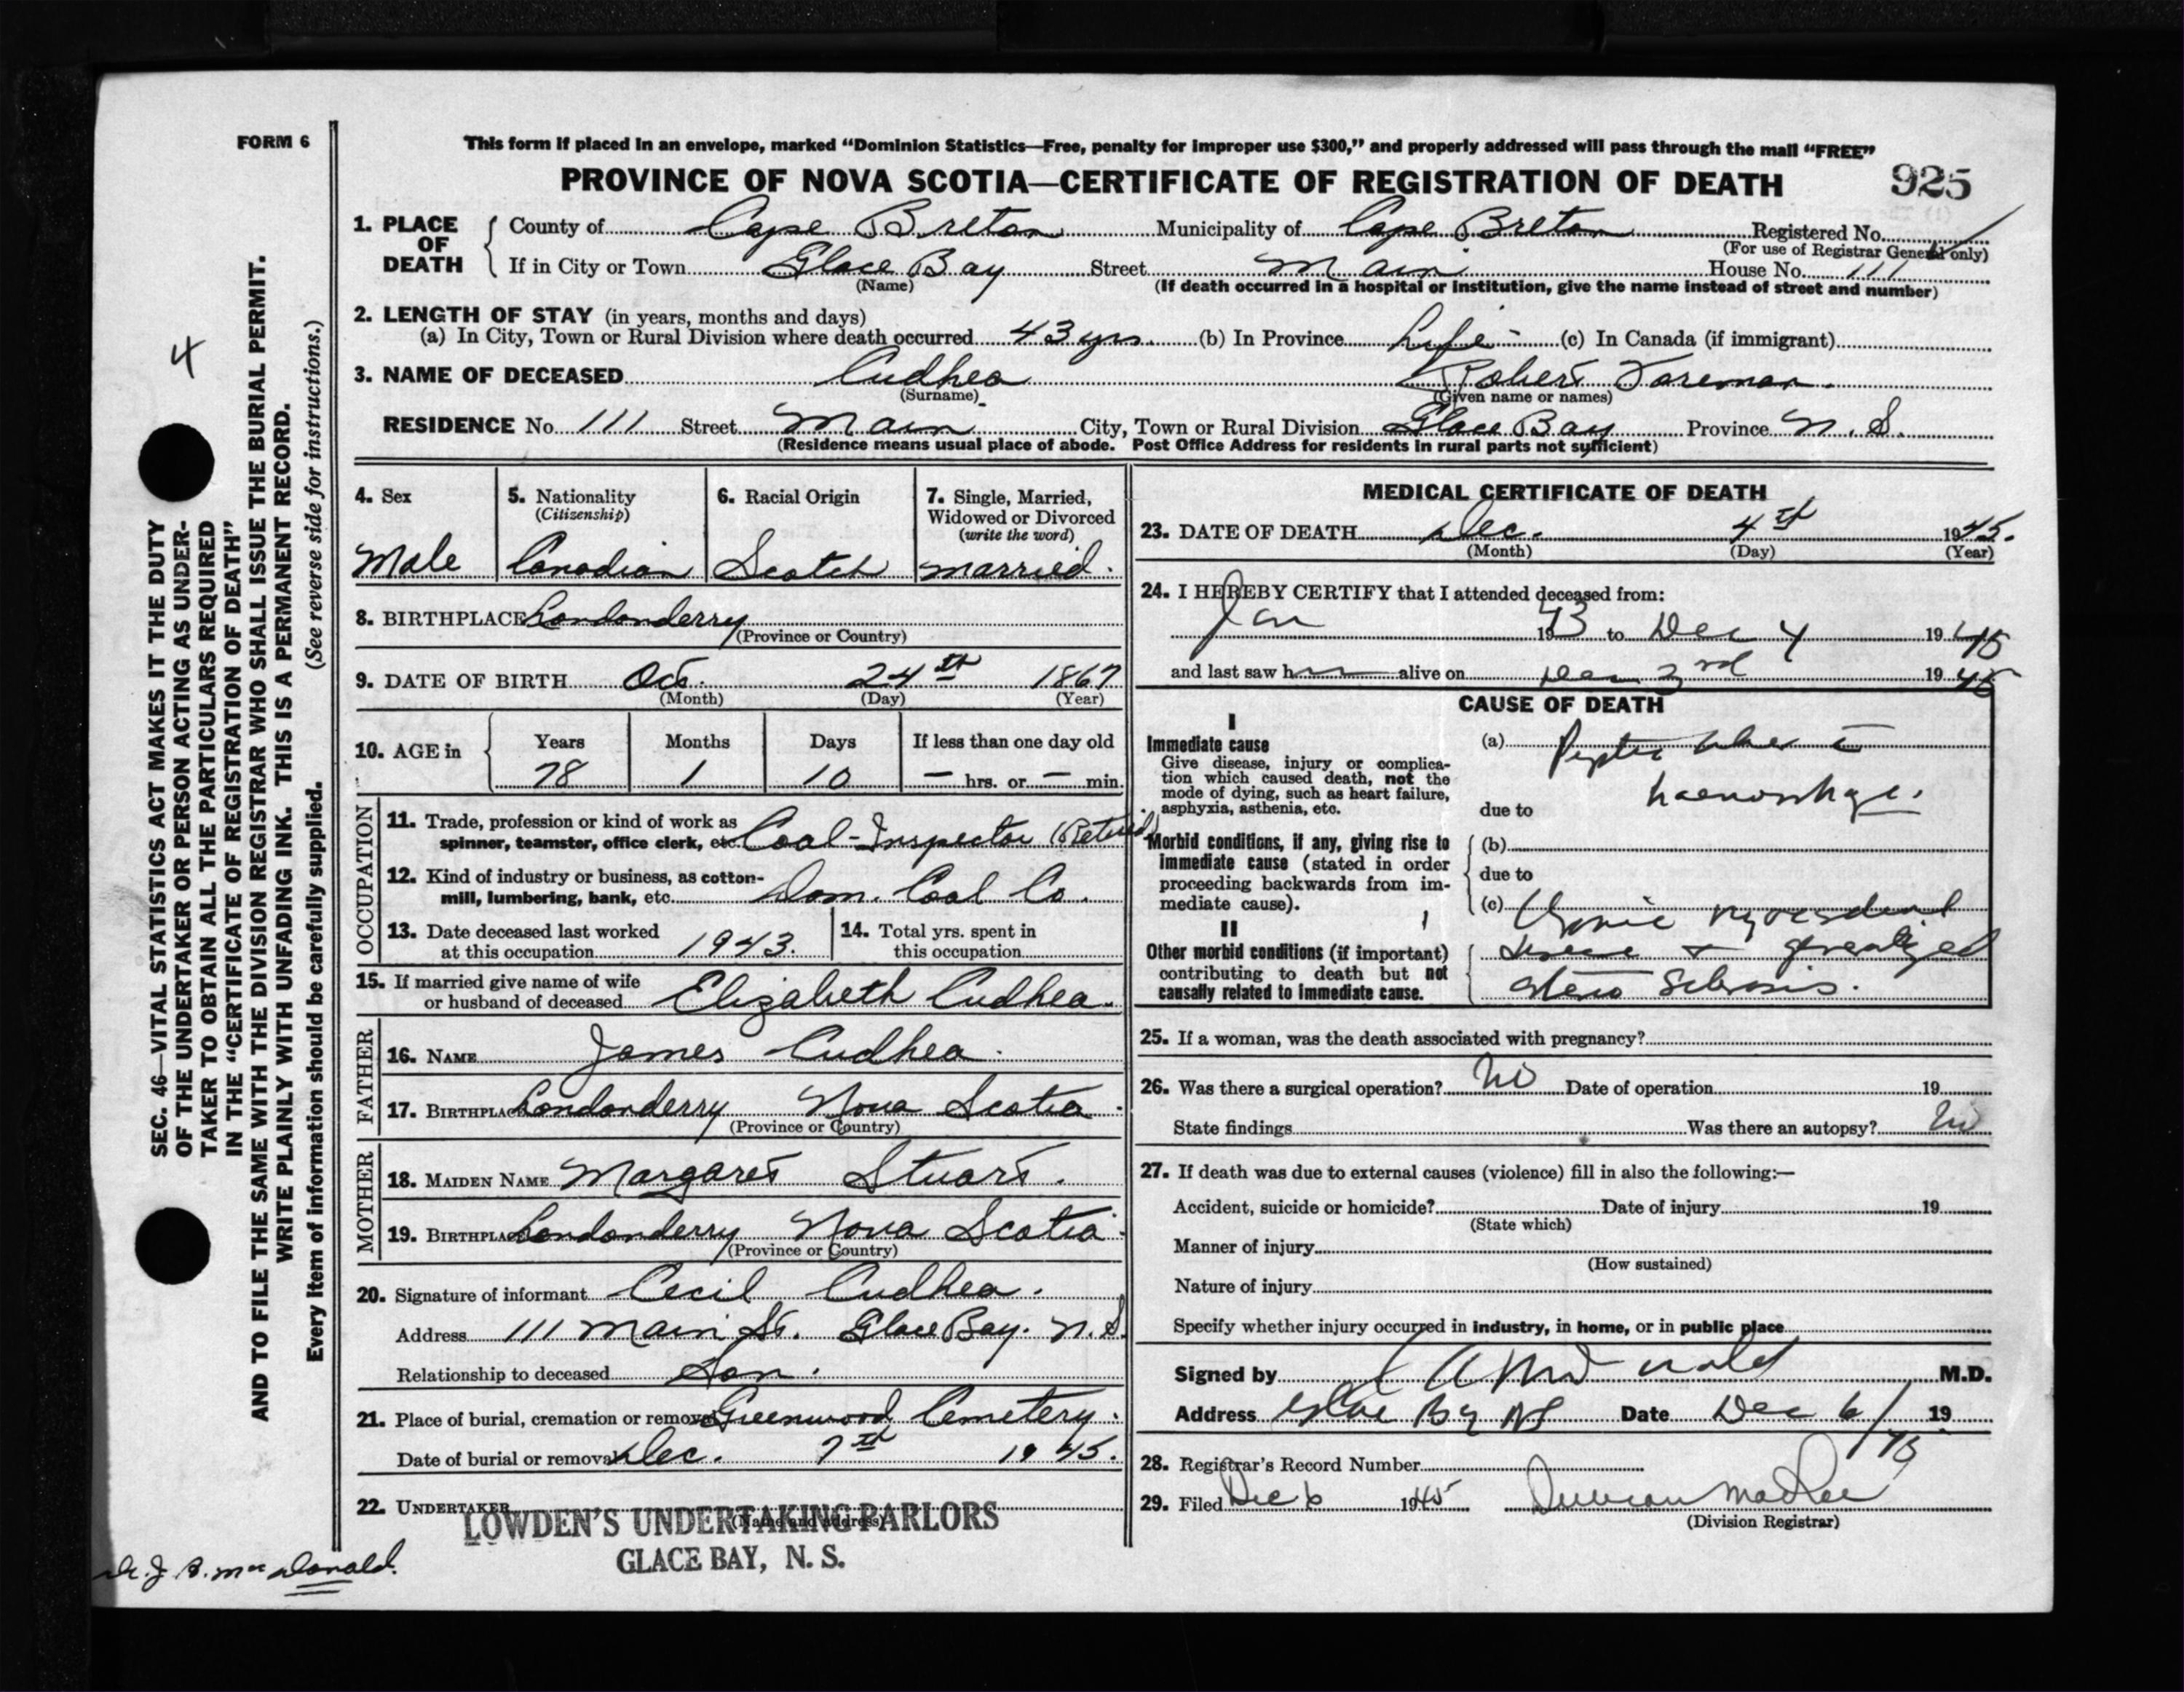 FORM 6
This form if placed in an envelope, marked “Dominion Statistics—Free, penalty for improper use $300,” and properly addressed will pass through the mail “FREE”
PROVINCE OF NOVA SCOTIA—CERTIFICATE OF REGISTRATION OF DEATH 925
1. PLACE OF DEATH
County of Cape Breton Municipality of Cape Breton Registered No.
(For use of Registrar General only)
If in City or Town Glace Bay Street Main House No. 111
(Name) (If death occurred in a hospital or institution, give the name instead of street and number)
2. LENGTH OF STAY (in years, months and days)
(a) In City, Town or Rural Division where death occurred 43 yrs. (b) In Province Life - (c) In Canada (if immigrant)
3. NAME OF DECEASED Cudhea Robert Foreman.
(Surname) (Given name or names)
RESIDENCE No. 111 Street Main City, Town or Rural Division Glace Bay Province N. S.
(Residence means usual place of abode. Post Office Address for residents in rural parts not sufficient)
4. Sex
Male
5. Nationality
(Citizenship)
Canadian
6. Racial Origin
Scotch
7. Single, Married,
Widowed or Divorced
(write the word)
Married.
8. BIRTHPLACE Londonderry
(Province or Country)
9. DATE OF BIRTH Oct. 24th 1867
(Month) (Day) (Year)
10. AGE in
Years Months Days If less than one day old
78 1 10 — hrs. or — min.
OCCUPATION
11. Trade, profession or kind of work as
spinner, teamster, office clerk, etc. Coal-Inspector (Retired)
12. Kind of industry or business, as cotton-
mill, lumbering, bank, etc. Dom. Coal Co.
13. Date deceased last worked
at this occupation 1943.
14. Total yrs. spent in
this occupation
15. If married give name of wife
or husband of deceased Elizabeth Cudhea.
FATHER
16. NAME James Cudhea.
17. BIRTHPLACE Londonderry Nova Scotia.
(Province or Country)
MOTHER
18. MAIDEN NAME Margaret Stuart.
19. BIRTHPLACE Londonderry Nova Scotia.
(Province or Country)
20. Signature of informant Cecil Cudhea.
Address 111 Main St. Glace Bay. N. S.
Relationship to deceased Son.
21. Place of burial, cremation or removal Greenwood Cemetery.
Date of burial or removal Dec. 7th 1945.
22. UNDERTAKER
(Name and address)
LOWDEN'S UNDERTAKING PARLORS
GLACE BAY, N. S.
MEDICAL CERTIFICATE OF DEATH
23. DATE OF DEATH Dec. 4th 1945.
(Month) (Day) (Year)
24. I HEREBY CERTIFY that I attended deceased from:
Jan 1943 to Dec 4 1945
and last saw h alive on Dec 3rd 1945
CAUSE OF DEATH
I
Immediate cause
Give disease, injury or complica-
tion which caused death, not the
mode of dying, such as heart failure,
asphyxia, asthenia, etc.
(a) Peptic ulcer c̄
haemorrhage.
due to
Morbid conditions, if any, giving rise to
immediate cause (stated in order
proceeding backwards from im-
mediate cause).
(b)
due to
(c) Chronic myocardial
II
Other morbid conditions (if important)
contributing to death but not
causally related to immediate cause.
disease + generalized
arterio sclerosis.
25. If a woman, was the death associated with pregnancy?
26. Was there a surgical operation? No Date of operation 19
State findings Was there an autopsy? No
27. If death was due to external causes (violence) fill in also the following:—
Accident, suicide or homicide? Date of injury 19
(State which)
Manner of injury
(How sustained)
Nature of injury
Specify whether injury occurred in industry, in home, or in public place
Signed by M.D.
Address Glace Bay NS Date Dec 6/ 19 45
28. Registrar's Record Number
29. Filed Dec 6 1945 Duncan MacRae
(Division Registrar)
4
SEC. 46—VITAL STATISTICS ACT MAKES IT THE DUTY
OF THE UNDERTAKER OR PERSON ACTING AS UNDER-
TAKER TO OBTAIN ALL THE PARTICULARS REQUIRED
IN THE “CERTIFICATE OF REGISTRATION OF DEATH”
AND TO FILE THE SAME WITH THE DIVISION REGISTRAR WHO SHALL ISSUE THE BURIAL PERMIT.
WRITE PLAINLY WITH UNFADING INK. THIS IS A PERMANENT RECORD.
Every item of information should be carefully supplied. (See reverse side for instructions.)
Dr. J. A. MacDonald.